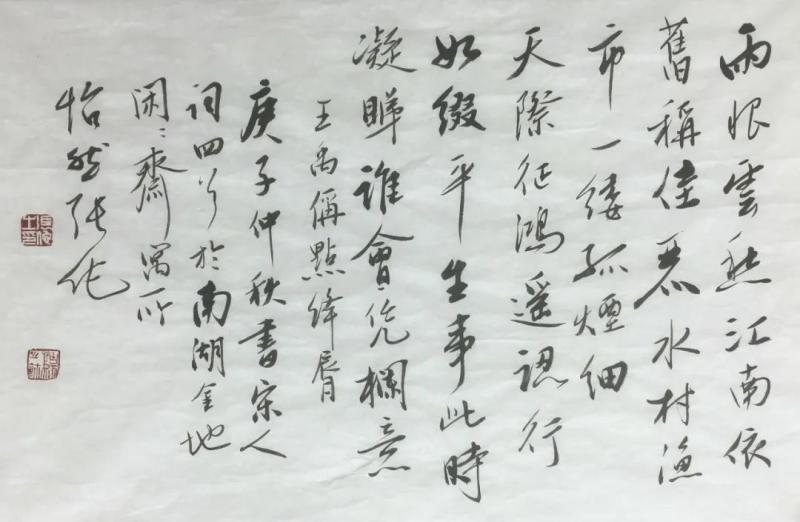 雨恨雲愁江南依
舊稱佳麗水村漁
市一縷孤煙細
天際征鴻遥認行
如綴平生事此時
凝睇誰會凭欄意
王禹偁點绛唇
庚子仲秋書宋人
词四首於南湖金地
闲闲齋寓所
怡然張化